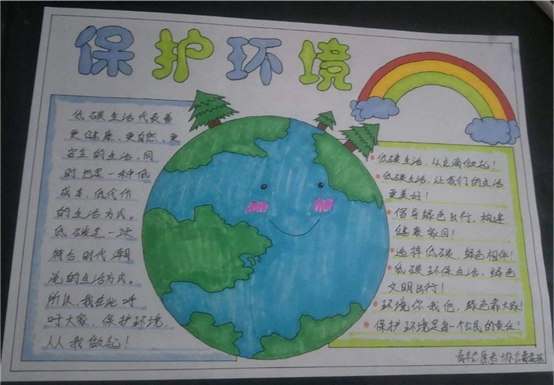 保护环境
低碳生活代表着
更健康、更自然、更
安全的生活，同
时也是一种低
成本、低代价
的生活方式。
低碳是一次
符合时代潮
流的生活方式。
所以，我在此呼
吁大家，保护环境
从我做起！
低碳生活，从点滴做起！
低碳生活，让我们的生活
更美好！
倡导绿色出行，构建
健康家园！
选择低碳，绿色相伴！
低碳环保生活，绿色
文明出行！
环境你我他，绿色靠大家！
保护环境是每一个公民的责任！